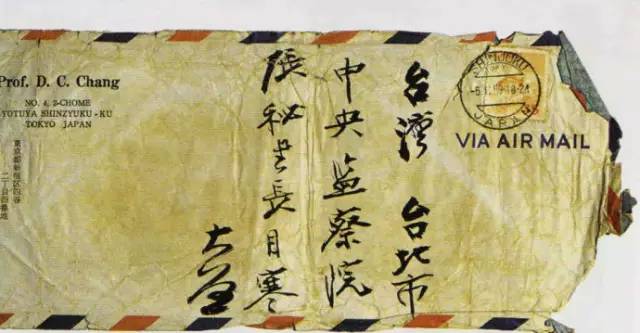 Prof. D. C. Chang
NO. 4, 2-CHOME
YOTUYA SHINZYUKU-KU
TOKYO JAPAN
東京都新宿区四谷
二丁目四番地
JAPAN
VIA AIR MAIL
台灣 台北市
中央监察院
張秘书長目寒
大